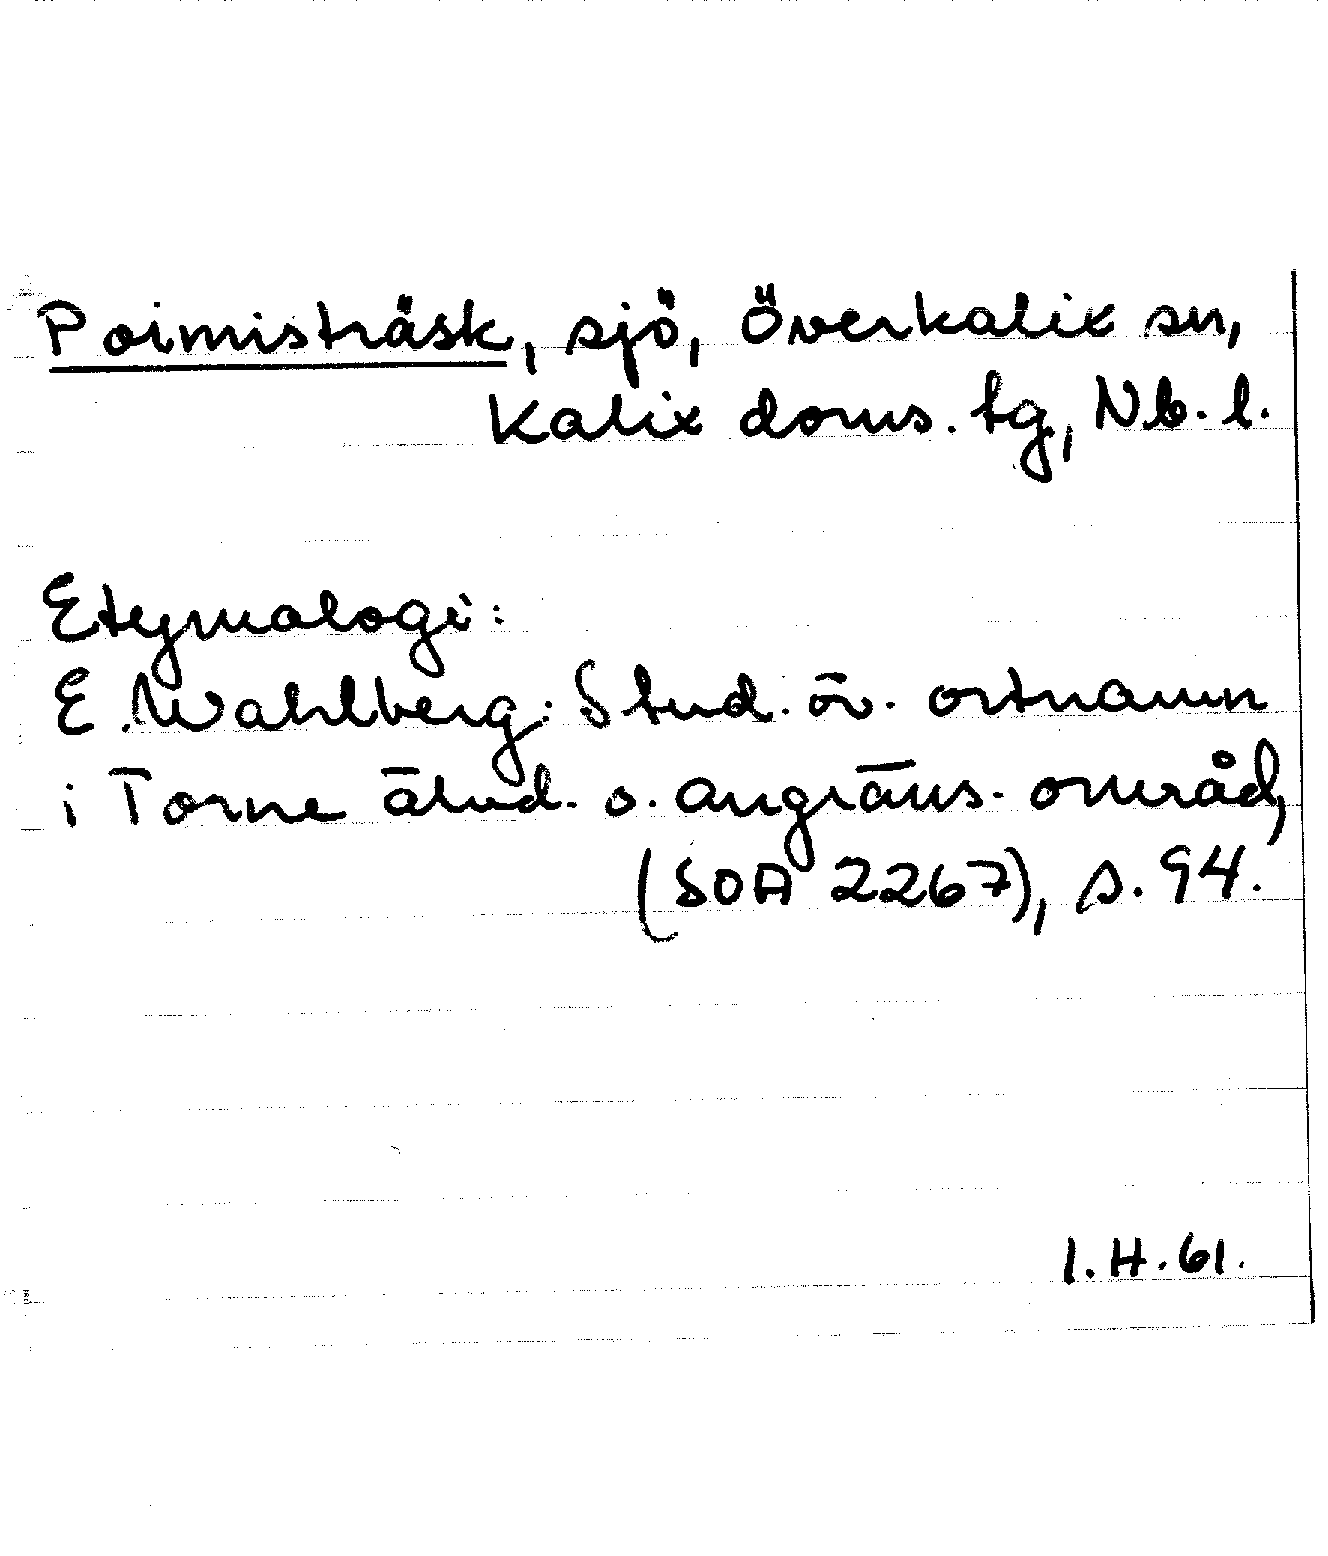 Poimisträsk, sjö, Överkalix sn,
Kalix doms. tg, Nb. l.
Etymologi:
E. Wahlberg: Stud. öv. ortnamn
i Torne älvd. o. angräns. områd,
(SOA 2267), s. 94.
I. H. 61.